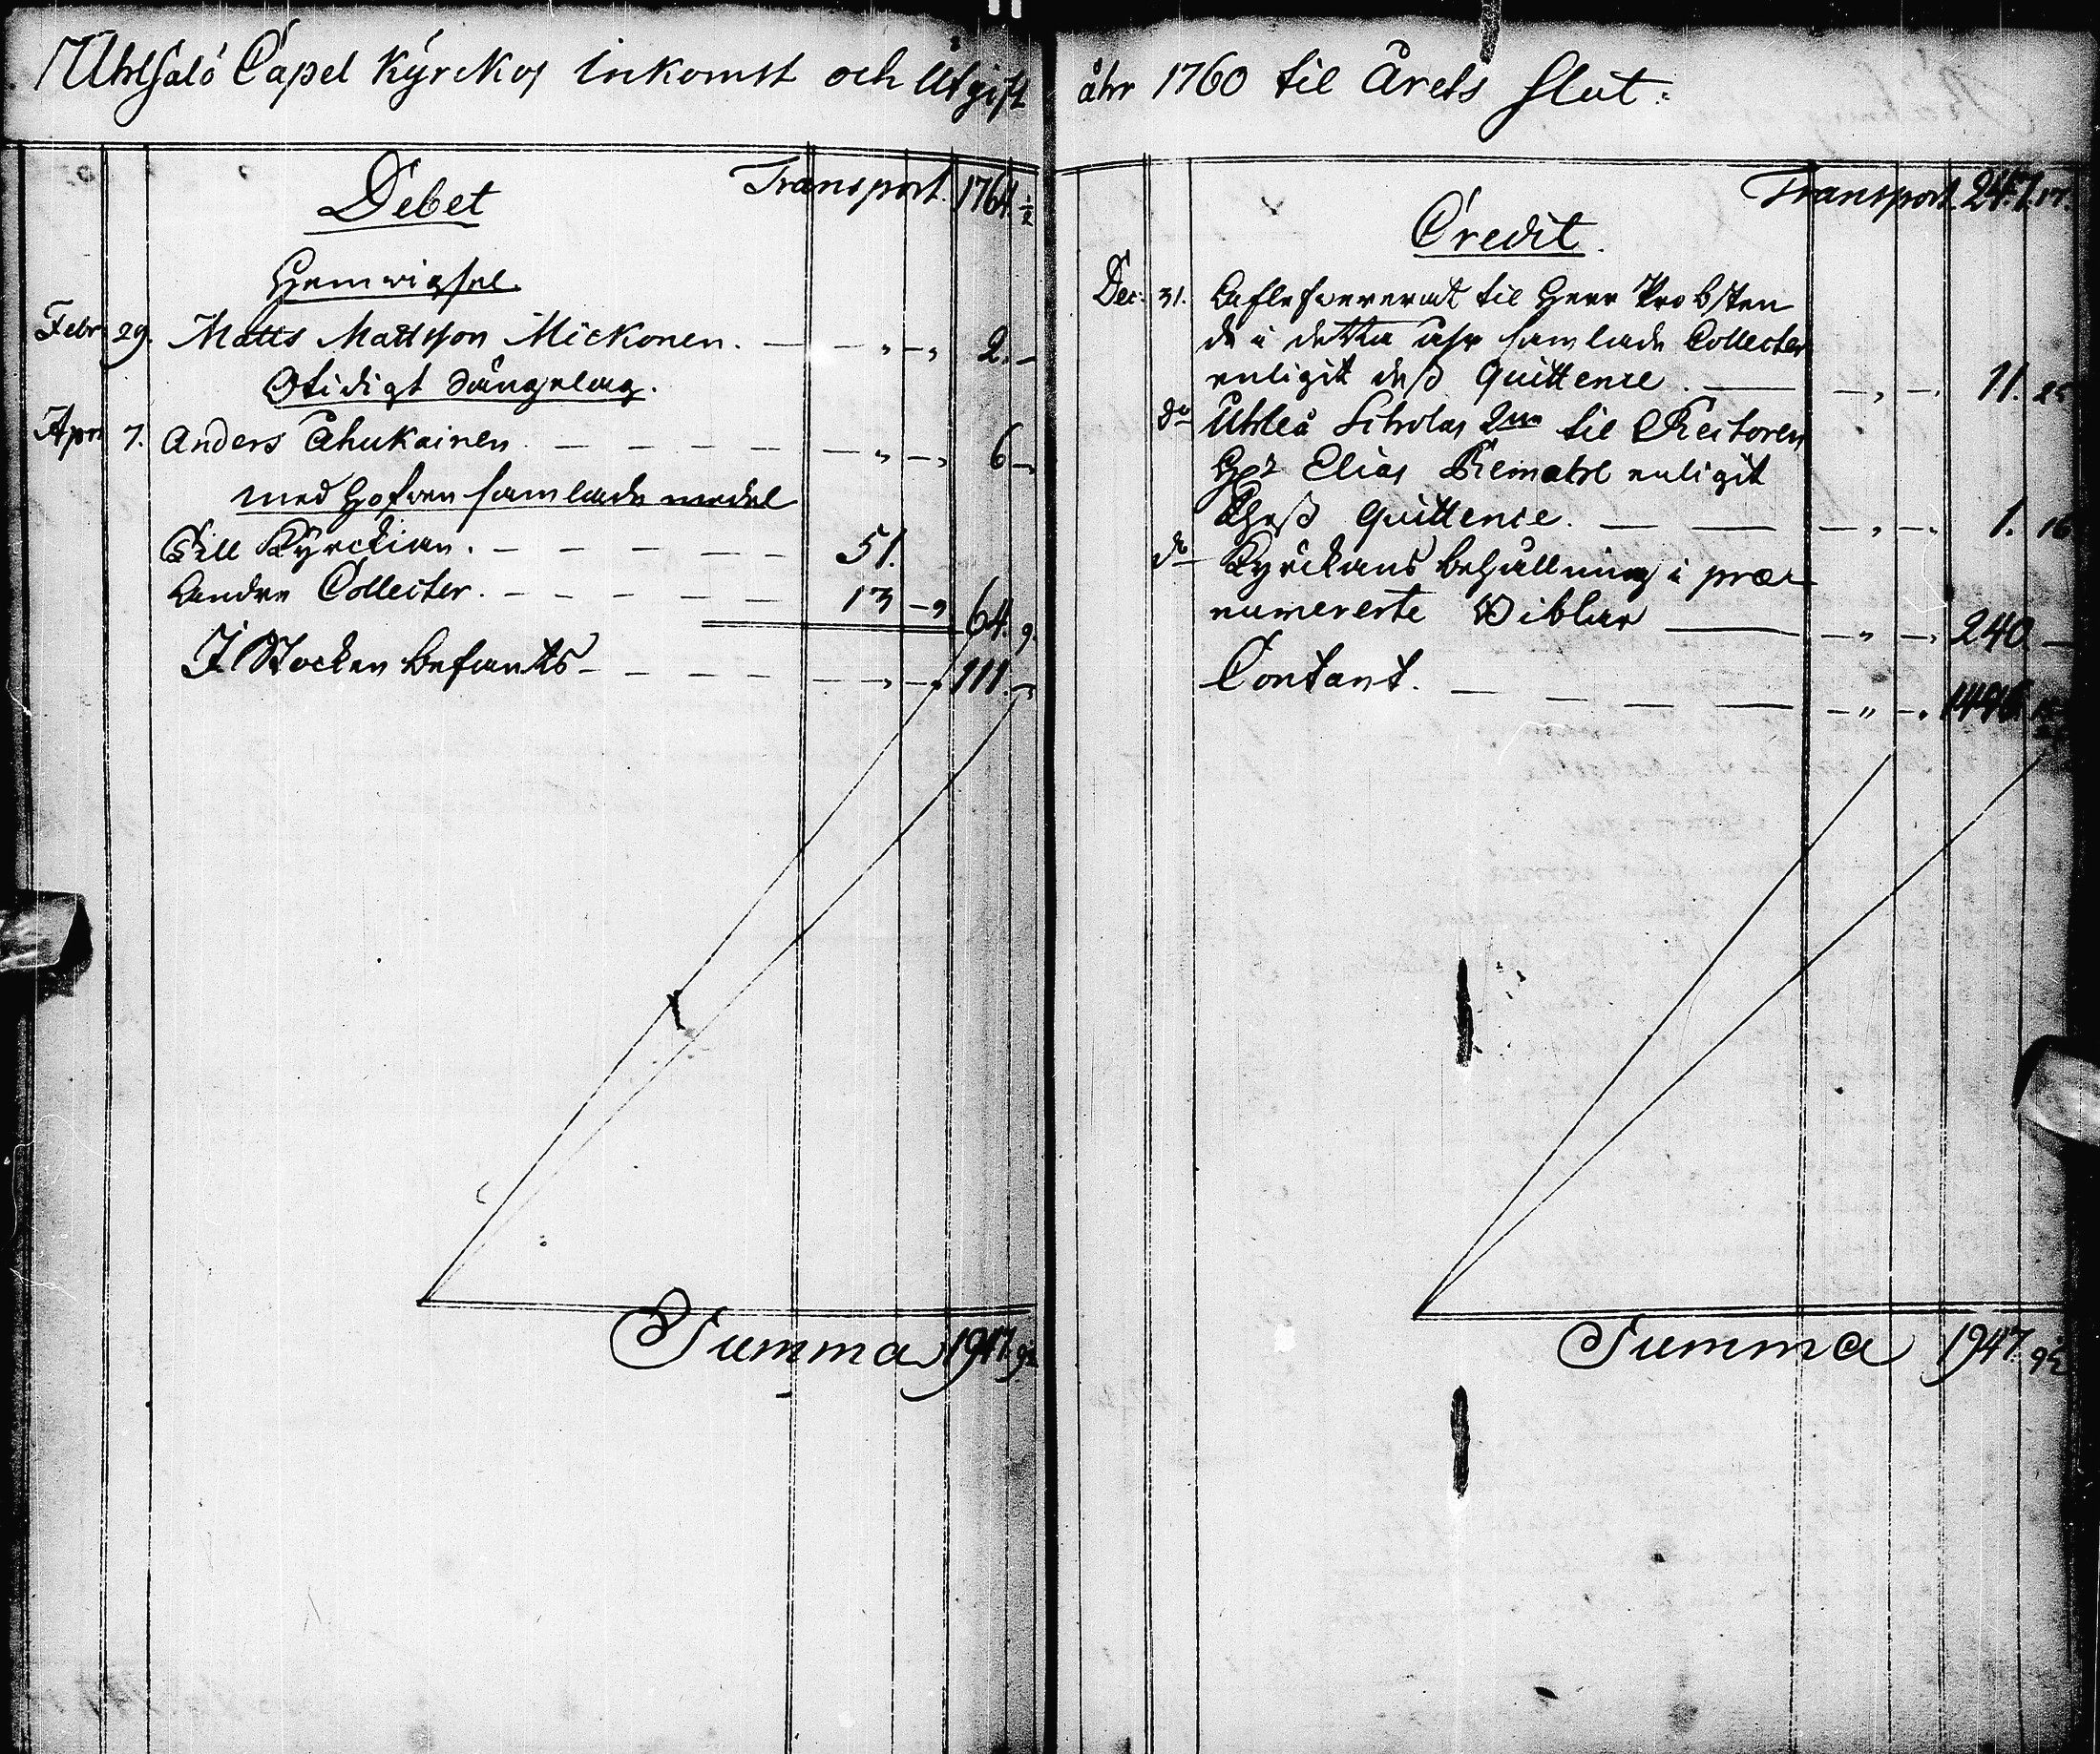 Uhlsalö Capel Kyrckos inkomst och Utgift åhr 1760 til Årets slut:
Debet Transport. 1764. ½
Hemwigsel.
Febr. 29. Matts Mattsson Mickonen. — — „ — „ 2. —
Otidigt Sängelag.
Apr. 7. Anders Ahukainen — — — — — „ — „ 6 —
med Hofwen samlade medel
Till Kyrckian. — — — — — 51.
Andre Collecter. — — — — — 13 — „ 64. 9.
I Stocken befants — — — — — „ — „ 111. —
Summa 1947. 9½
Transport. 247. 17.
Credit.
Dec: 31. Aflefwererat til Herr Probsten
de i detta åhr samlade Collecter
enligit deß Quittence. — — „ — 11. 25
do Uhleå Scholas til Rectoren
Hr Elias enligit
Theß Quittence. — — — „ — 1. 16
do Kyrckans behållning i præ-
numererte Biblar — — „ — 240. —
Contant. — — — — — „ — 1446.
Summa 1947. 9½